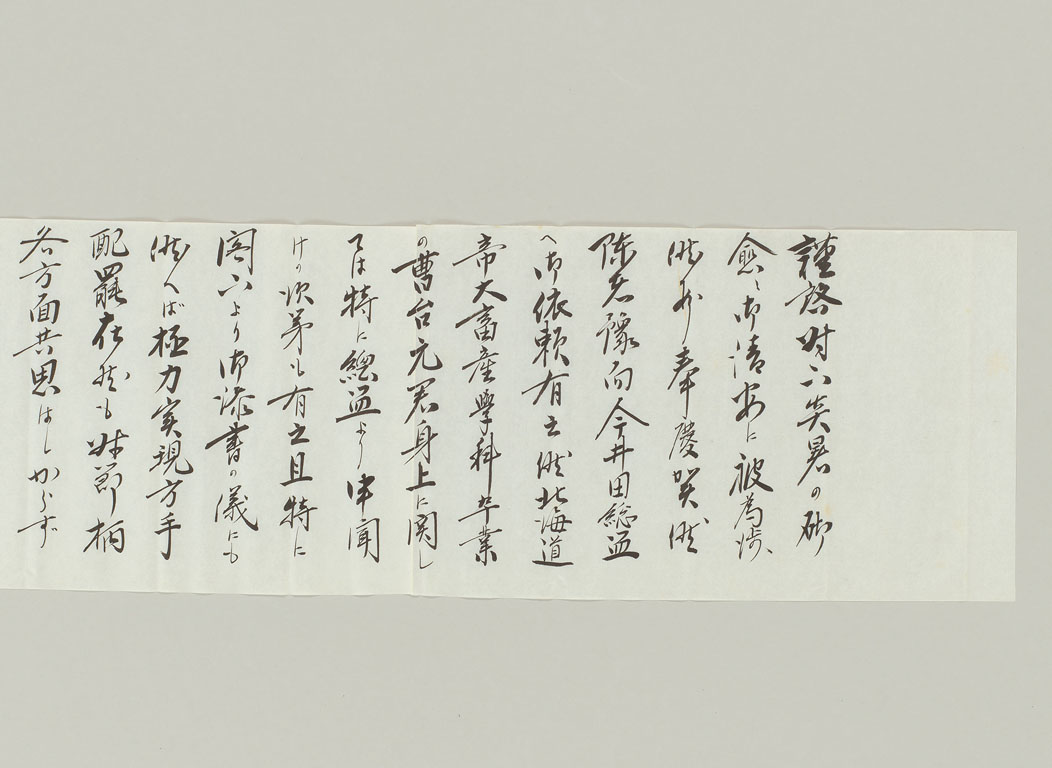 謹啓時下炎暑の砌
愈々御清安に被為渉、
候多奉慶賀候
陳者豫而今井田総監
へ御依頼有之候北海道
帝大畜産學科卒業
の曹台元君身上に関し
ては特に總監より申聞
けの次第も有之且特に
閣下より御添書の儀にも
候へば極力実現方手
配罷在候も時節柄
各方面共思はしからず